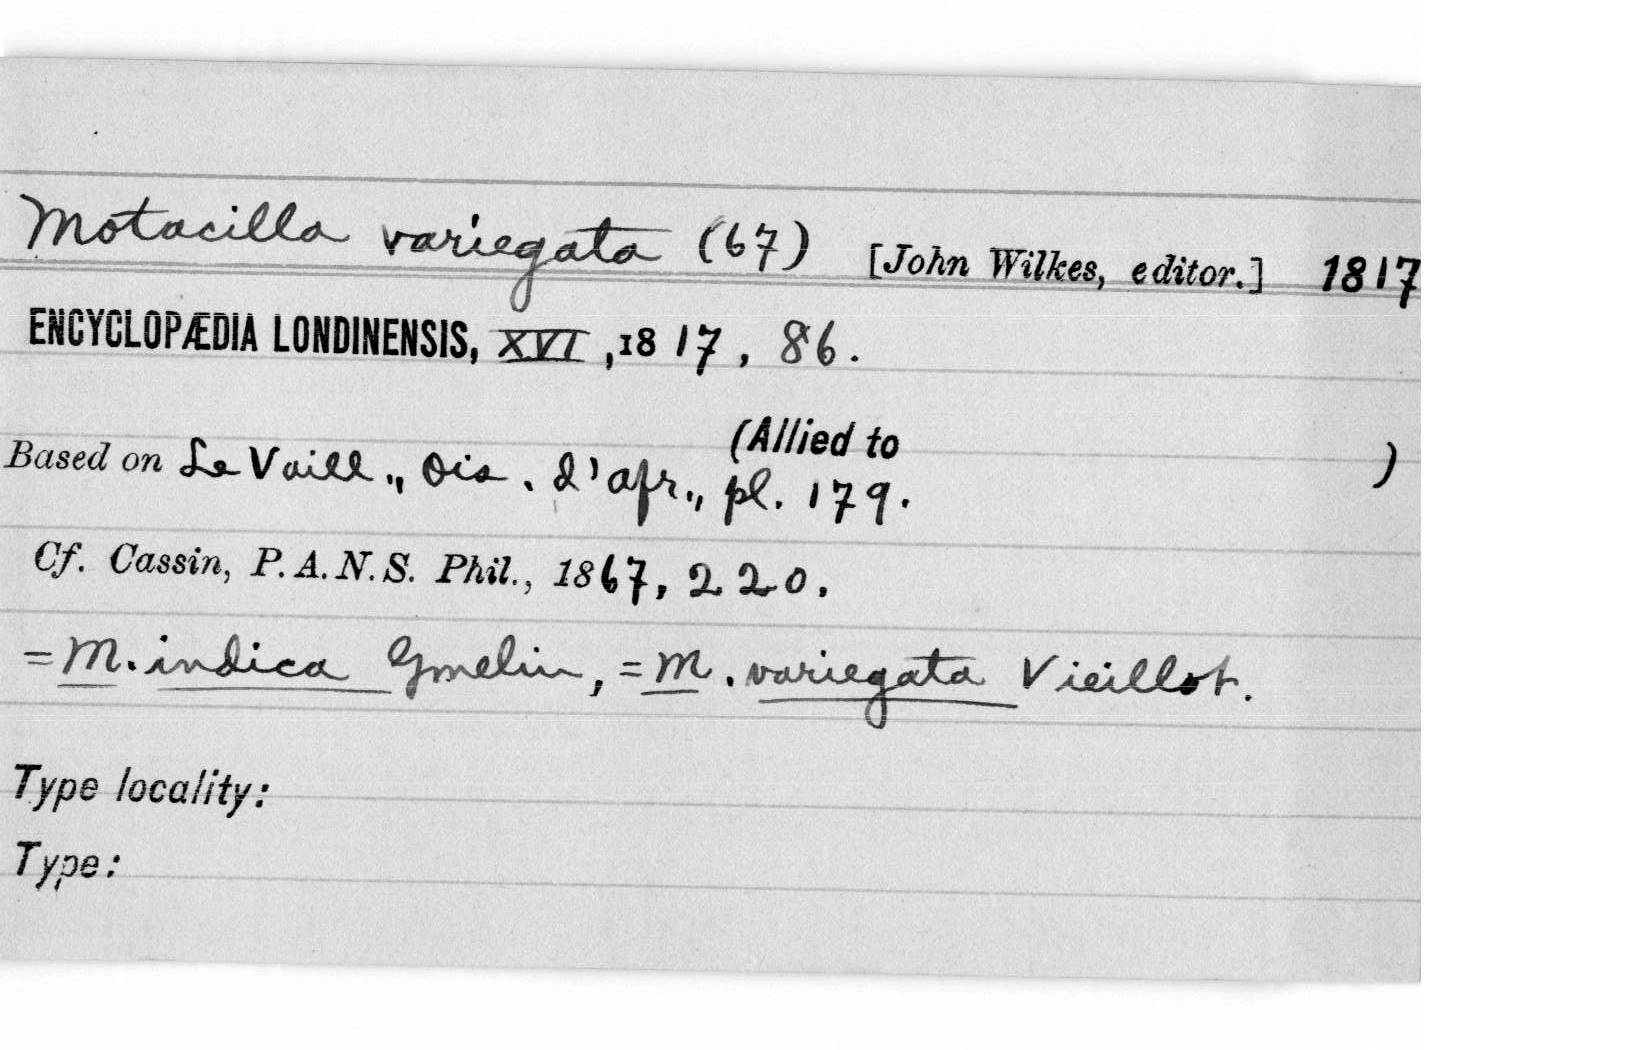 Motacilla variegata (67) [John Wilkes, editor.] 1817
ENCYCLOPÆDIA LONDINENSIS, XVI, 1817, 86.
(Allied to )
Based on Le Vaill., Ois. d'afr., pl. 179.
Cf. Cassin, P. A. N. S. Phil., 1867, 220.
=M. indica Gmelin, =M. variegata Vieillot.
Type locality:
Type: